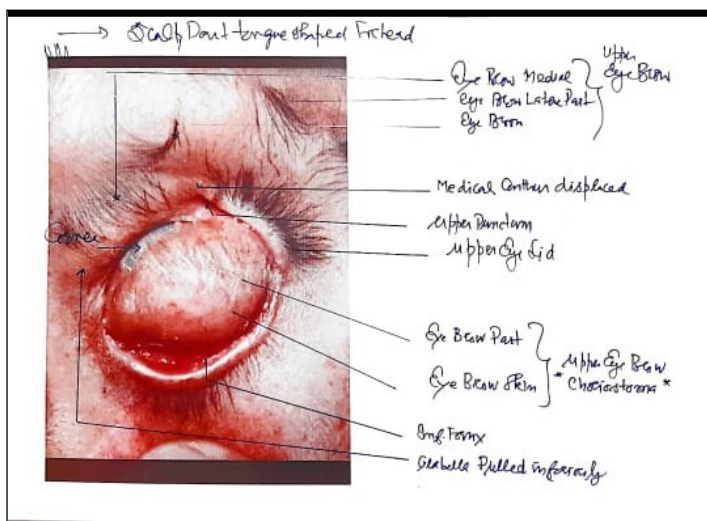 Scalp Dout tongue shaped Frhead
Upper
Eye Brow
Eye Brow Medial
Eye Brow Later Part
Eye Brow
Medical Canthus displaced
Upper Punctum
Upper Eye Lid
Cornea
Eye Brow Part
Eye Brow Skin
Upper Eye Brow
* Choriostoma *
Inf. Fornx
Glabella Pulled inferiorly